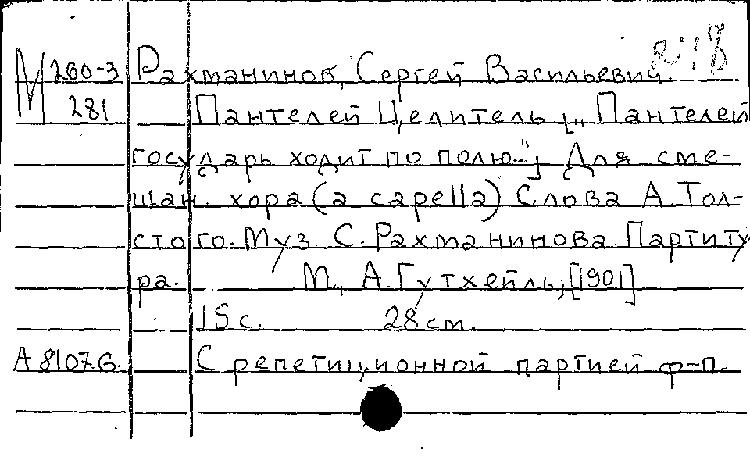 М 260-3 Рахманинов, Сергей Васильевич.
281 Пантелей Целитель [„Пантелей
государь ходит по полю..."] Для сме-
шан. хора (a capella) Слова А. Тол-
стого. Муз С. Рахманинова Партиту
ра. М., А. Гутхейль, [1901]
15 с. 28 см.
А 8107G. С репетиционной партией ф-п.